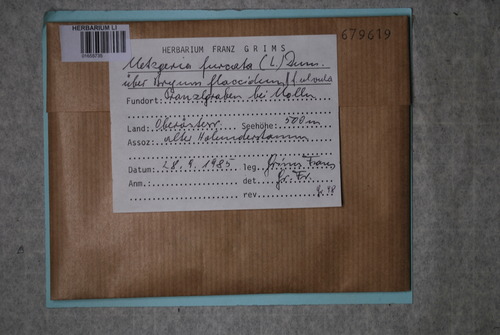 HERBARIUM LI
679619
HERBARIUM FRANZ GRIMS
Metzgeria furcata (L.) Dum.
über Bryum flaccidum
Fundort: bei Molln
Land: Oberösterr. Seehöhe: 500m
Assoz: alter Holunderstamm
Datum: 28.9.1985 leg. Grims Franz
Anm.: det. Gr. Fr.
rev. Gr. 98